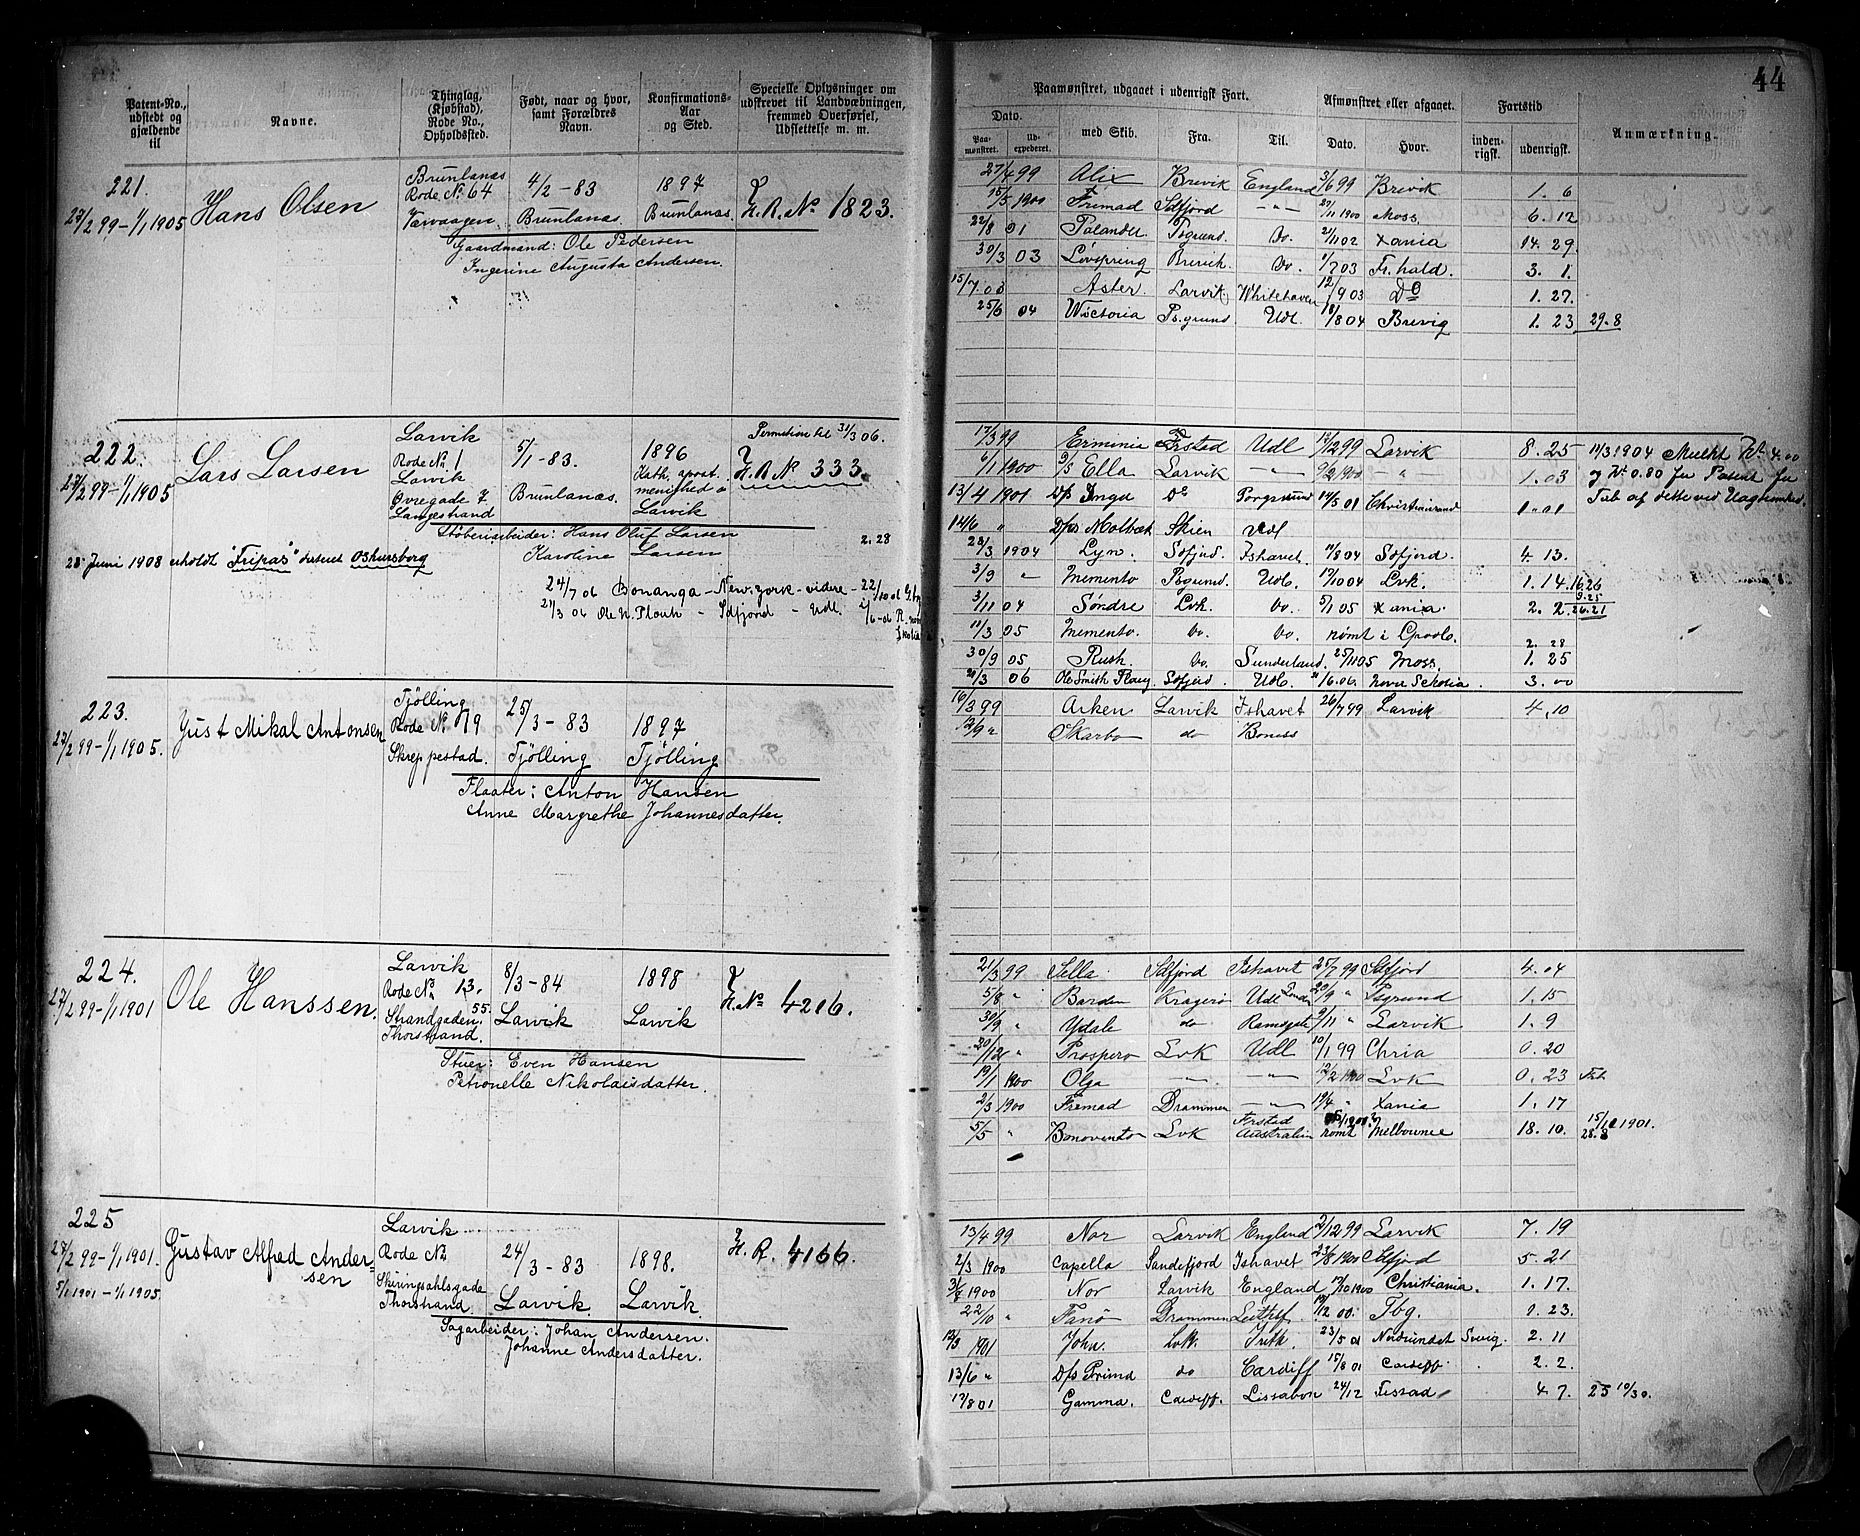 44
Patent-No., udstedt og gjældende til
Navne.
Thinglag, (Kjøbstad), Rode No., Opholdssted.
Født, naar og hvor, samt Forældres Navn.
Konfirmations-Aar og Sted.
Specielle Oplysninger om udskrevet til Landværbningen, fremmed Overførsel, Udslettelse m. m.
Paamønstret, udgaaet i udenrigsk Fart.
Afmønstret eller afgaaet.
Fartstid
Anmærkning.
Dato.
med Skib.
Fra.
Til.
Dato.
Hvor.
inden-rigsk.
udenrigsk.
Paa-mønstret.
Ud-expederet.
221.
27/2 99 - 1/1 1905
Hans Olsen
Brunlanæs
Rode No. 64
4/2 - 83
Brunlanæs
1897
Brunlanæs
H. R. No 1823.
Gaardmand: Ole Pedersen
Ingerine Augusta Andersen.
27/4 99 Alix Brevik England 3/6 99 Brevik 1. 6
15/5 1900 Fremad Sdfjord -"- 27/11 1900 Moss 6. 12
22/8 01 Palander Psgrund. Do. 2/11 02 Xania 14. 29.
30/3 03 Løvspring Brevik Do. 1/7 03 Fr.hald. 3. 1.
15/7 03 Aster Larvik Whitehaven 12/9 03 Do 1. 27.
25/6 04 Wictoria Ps.grund. Udl. 18/8 04 Brevig 1. 23 29-8
222.
27/2 99 - 1/1 1905
Lars Larsen
Larvik
Rode No. 1
Larvik
Øvregade 7
Langestrand
5/1 - 83.
Brunlanæs.
1896
Kath. apost. menighed i Larvik
Permition til 31/3 06.
H. R. No 333.
Støberiarbeider: Hans Oluf Larsen
Karoline Larsen
2. 28
28 Juni 1908 erholdt "Fripas"
24/7 06 Bonanga - New.york - videre - 22/10 06
21/3 06 Ole - Sdfjord - Udl.
17/3 99 Erminia Frstad Udl 17/12 99 Larvik 8. 25
6/1 1900 Ella Larvik -"- 9/2 1900 -"- 1. 03
13/4 1901 D/s Inga Do Porgrund 14/5 01 Christiansand 1 " 01
14/6 " D/s Molbæk Skien Udl
28/3 1904 Lyn. Sdfjrd. Ishavet. 11/8 04 Sdfjord. 4. 13.
3/9 " Memento Psgrund. Udl. 17/10 04 Lvk. 1. 14. 16 26
3/11 04 Søndre Lvk. Do. 5/1 05 Xania. 2. 2. 26.21
11/3 05 Memento. Do. Do. rømt i 2. 28
30/9 05 Rush. Do. Sunderland. 25/11 05 Moss. 1. 25
21/3 06 Ole Smith Ploug Sdfjord. Udl. 16.06. Nova Scotia. 3. 00
11/3 1904
223.
27/2 99 - 1/1 1905.
Just Mikal Antonsen
Tjølling
Rode No. 79
Skreppestad.
25/3 - 83
Tjølling
1897
Tjølling
Flaater: Anton Hansen
Anne Margrethe Johannesdatter.
16/3 99 Arken Larvik Ishavet 26/7 99 Larvik 4. 10
12/9 " Skarbo do Boness
224.
27/2 99 - 1/1 1901
Ole Hanssen.
Larvik
Rode No. 13.
Strandgaden. 55.
Thorstrand.
8/3 - 84
Larvik
1898
Larvik
H. No 4216.
Stuer: Even Hansen
Petronelle Nikolaisdatter.
21/3 99 Sella Sdfjord Ishavet 25/7 99 Sdfjord 4. 04
5/8 " Barden Kragerø Udl London 20/9 " Psgrund 1. 15
30/9 " Ydale do Ramsgate 9/11 " Larvik 1. 9
20/12 " Prospero Lvk Udl 10/1 99 Chria 0. 20
19/1 1900 Olga -"- -"- 12/2 1900 Lvk 0. 23
2/3 1900 Fremad Drammen -"- 19/4 " Xania 1. 17
5/5 " Bonoventor Lvk Frstad Australien rømt Melbourne 18. 10. 15/11 1901. 28.8
225
27/2 99 - 1/1 1901.
5/1 1901 - 1/1 1905
Gustav Alfred Andersen
Larvik
Rode No.
Skiringsahlsgade
Thorstrand
24/3 - 83
Larvik.
1898.
Larvik
H. R. 4166.
Sagarbeider: Johan Andersen.
Johanne Andersdatter.
13/4 99 Nor Larvik England 2/12 99 Larvik 7. 19
2/3 1900 Capella Sandefjord Ishavet 23/8 1900 Sdfjord 5. 21
3/9 1900 Nor Larvik England 17/10 1900 Christiania. 1. 17.
22/10 " Fanø Drammen Leith 12/12 00. Tbg. 1. 23.
12/3 1901 John. Lvk. Frith. 23/5 01 Nordsundet Sverig. 2. 11
13/6 " D/s Primd do Cardiff 15/8 01 Cardiff. 2. 2.
17/8 01 Gamma. Cardiff. Lissabon 24/12 Frstad 4. 7. 25 10/30.